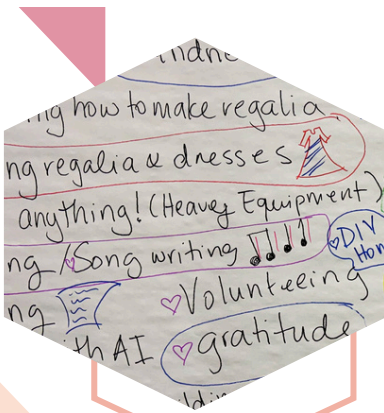 how to make regalia
regalia & dresses
anything! (Heavy Equipment)
/Song writing
DIY
Volunteeing
AI gratitude